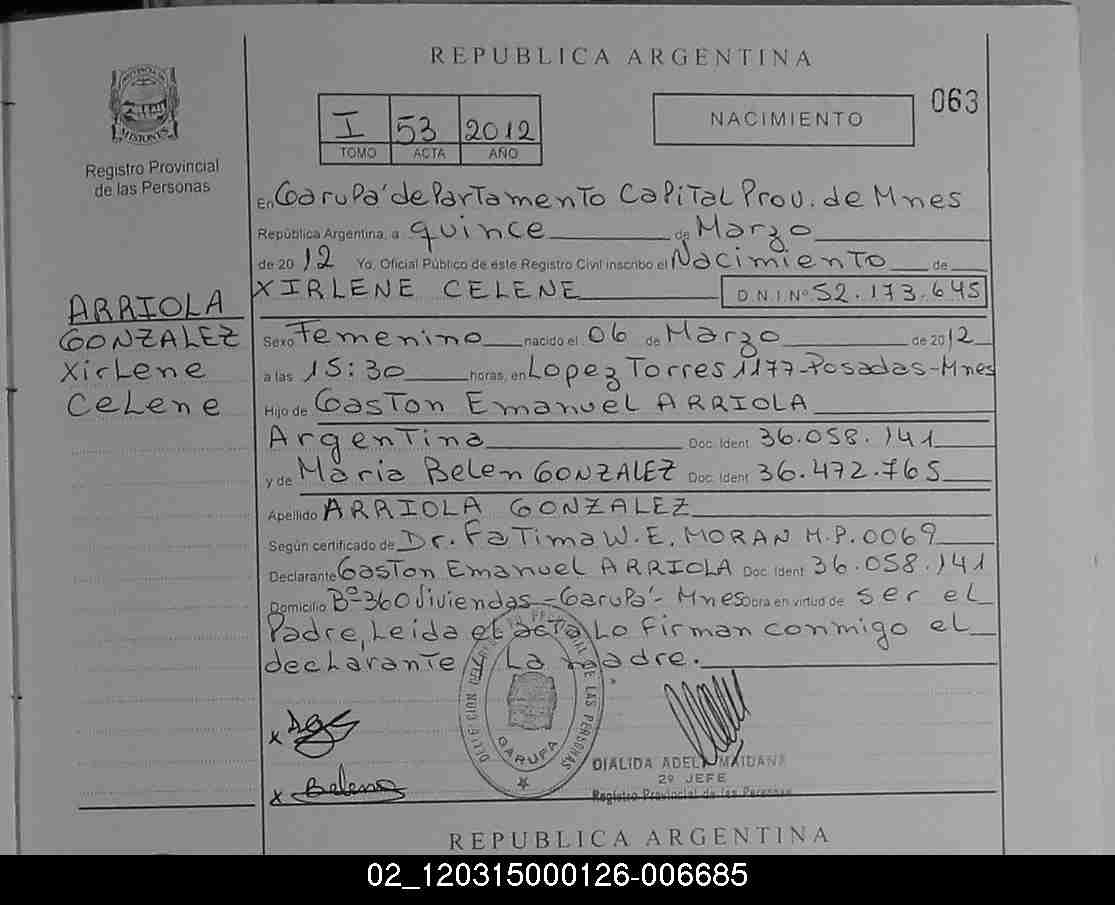 REPUBLICA ARGENTINA
063
PROVINCIA DE
MISIONES
Registro Provincial
de las Personas
I 53 2012
TOMO ACTA AÑO
NACIMIENTO
En Garupa' departamento Capital Prov. de Mnes
República Argentina, a quince de Marzo
de 2012 Yo, Oficial Público de este Registro Civil inscribo el Nacimiento de
XIRLENE CELENE D.N.I. Nº 52.173.645
ARRIOLA
GONZALEZ
Xirlene
Celene
Sexo Femenino nacido el 06 de Marzo de 2012
a las 15:30 horas, en Lopez Torres 1177-Posadas-Mnes
Hijo de Gaston Emanuel ARRIOLA
Argentina Doc. Ident 36.058.141
y de Maria Belen GONZALEZ Doc. Ident 36.472.765
Apellido ARRIOLA GONZALEZ
Según certificado de Dr. Fatima W. E. MORAN M.P. 0069
Declarante Gaston Emanuel ARRIOLA Doc. Ident 36.058.141
Domicilio Bº 360 Viviendas - Garupa'- Mnes Obra en virtud de ser el
Padre, Leida el acta Lo firman conmigo el
declarante y La madre.
x
x Belena
GARUPA
DE LAS PERSONAS
DIALIDA ADELA MAIDANA
2º JEFE
Registro Provincial de las Personas
REPUBLICA ARGENTINA
02_120315000126-006685